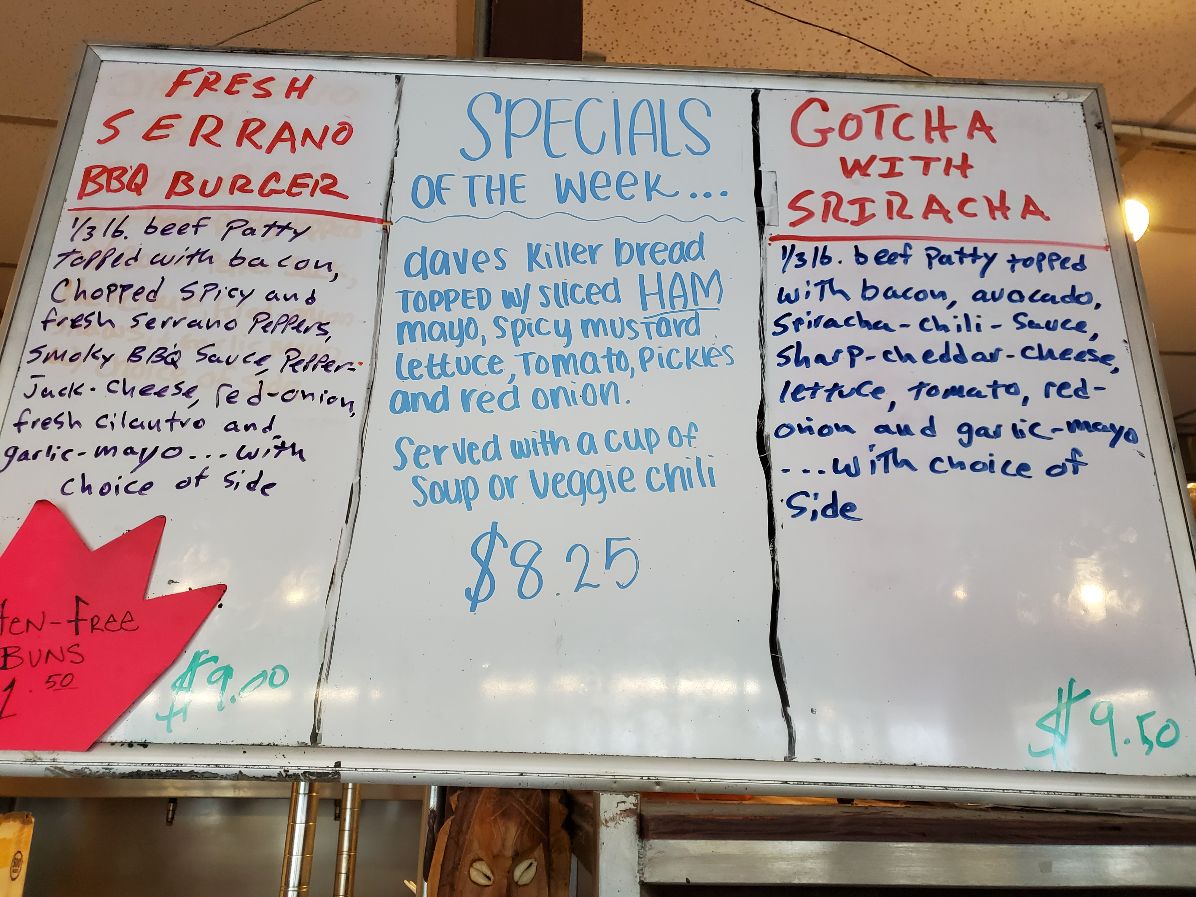 FRESH
SERRANO
BBQ BURGER
1/3 lb. beef Patty
topped with bacon,
Chopped Spicy and
fresh Serrano Peppers,
Smoky BBQ Sauce, Pepper-
Jack-Cheese, red-onion,
fresh cilantro and
garlic-mayo... with
choice of Side
ten-free
Buns
1.50
$9.00
SPECIALS
OF THE WEEK...
daves Killer bread
TOPPED W/ sliced HAM
mayo, spicy mustard
Lettuce, Tomato, Pickles
and red onion.
Served with a cup of
Soup or Veggie chili
$8.25
GOTCHA
WITH
SRIRACHA
1/3 lb. beef Patty topped
with bacon, avocado,
Sriracha-chili-Sauce,
Sharp-cheddar-cheese,
lettuce, tomato, red-
onion and garlic-mayo
...with choice of
Side
$9.50